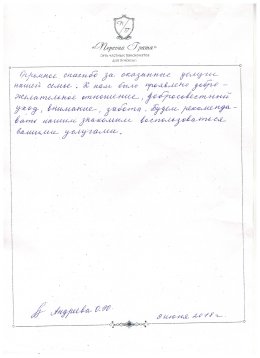 «Терезы Грант»
СЕТЬ ЧАСТНЫХ ПАНСИОНАТОВ
ДЛЯ ПОЖИЛЫХ
Огромное спасибо за оказанные услуги
нашей семье. К нам было проявлено добро-
желательное отношение, добросовестный
уход, внимание, забота. Будем рекомендо-
вать нашим знакомым воспользоваться
вашими услугами.
Андреева О.Ю.
июня 2018 г.